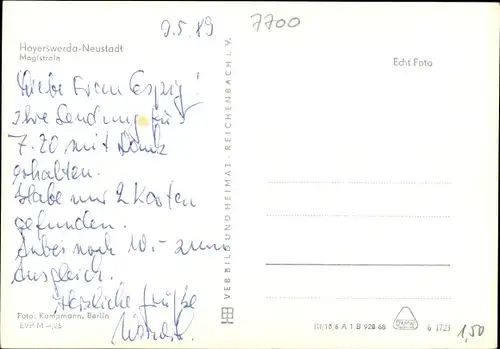 9.5.89
7700
Hoyerswerda-Neustadt
Magistrale
Echt Foto
Liebe Frau Espig!
Ihre Sendung für
7.20 mit Dank
erhalten.
Habe nur 2 Karten
gefunden.
Anbei noch 10,- zum
Ausgleich.
Herzliche Grüße
VEB BILD UND HEIMAT · REICHENBACH i. V.
Foto: Kampmann, Berlin
EVP M -,25
III/18/6 A 1 B 928 68
6 1723
1,50